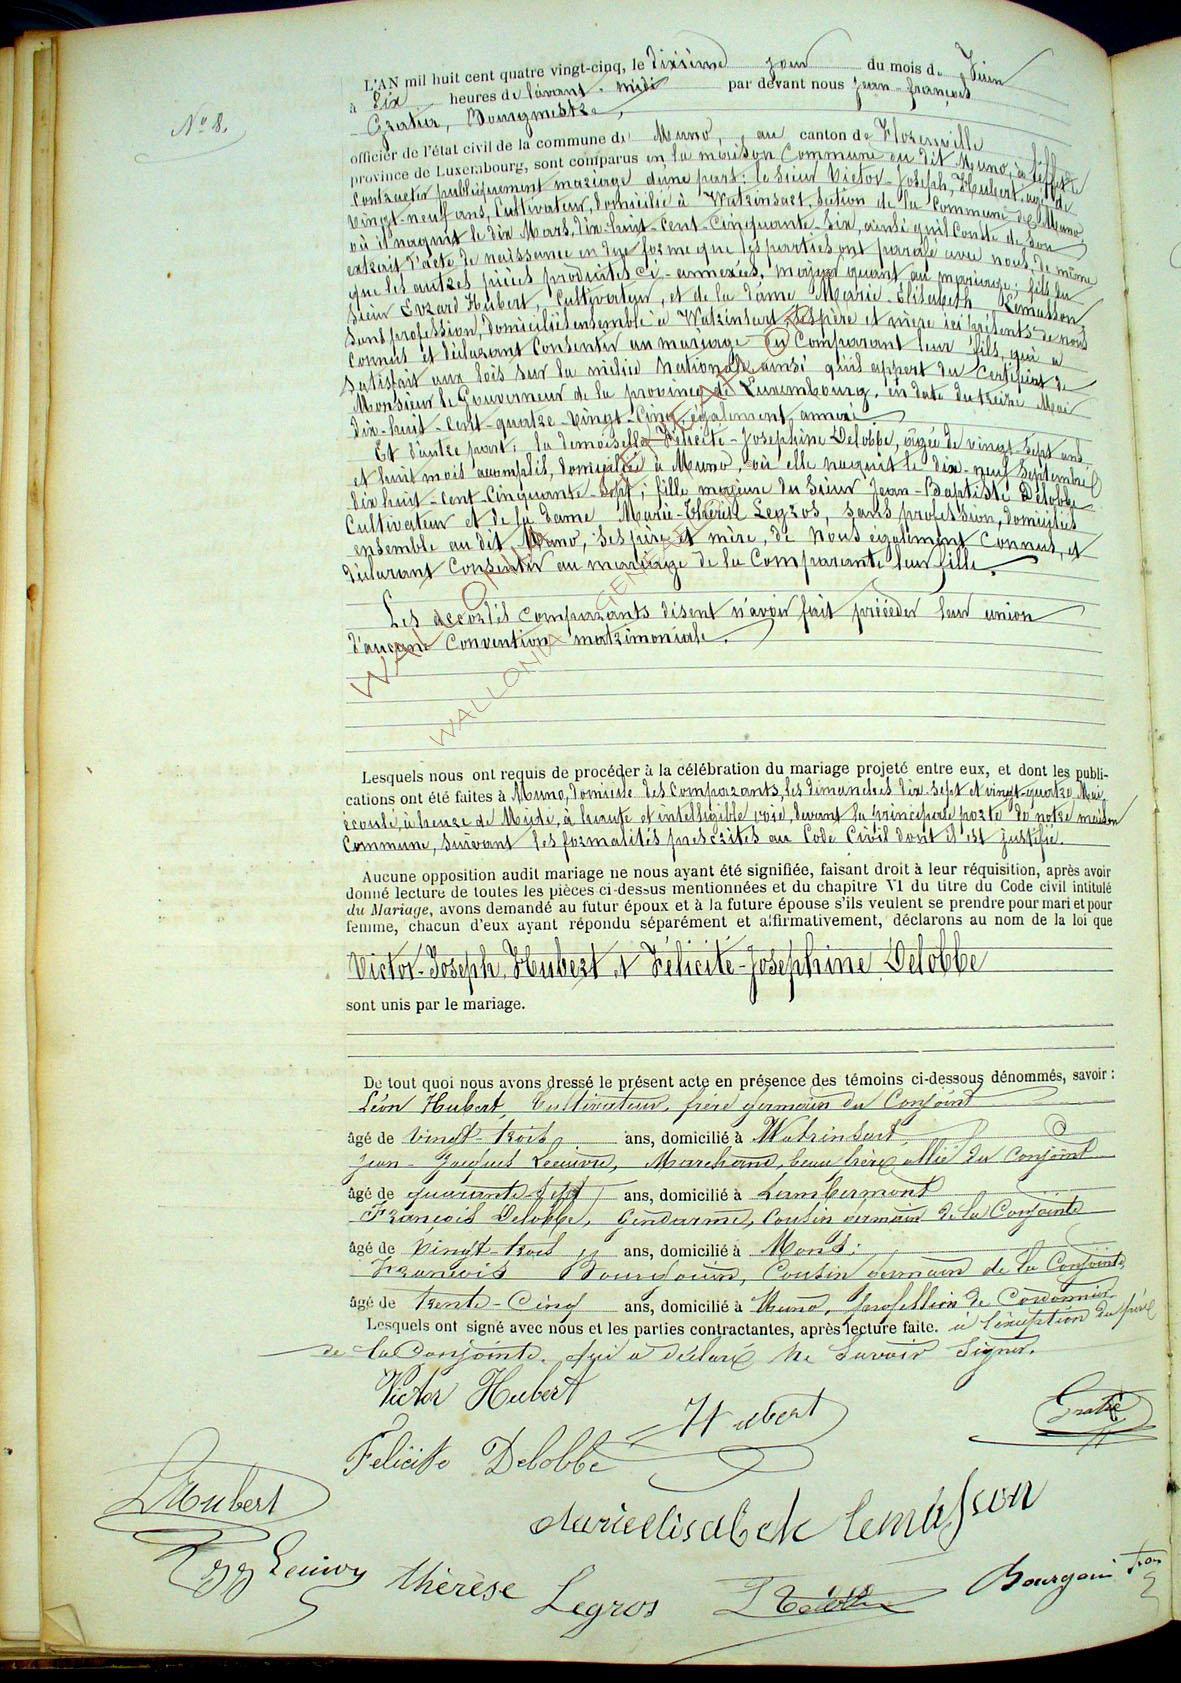 N° 8.
L'AN mil huit cent quatre vingt-cinq, le dixième jour du mois de Juin
à dix heures de l'avant-midi par devant nous Jean-françois
Bourgmestre,
officier de l'état civil de la commune de Muno, au canton de Florenville
province de Luxembourg, sont comparus en la maison Commune du dit Muno, à l'effet de
contracter publiquement mariage d'une part: le Sieur Victor-Joseph, Hubert, agé de
vingt-neuf ans, Cultivateur, domicilié à Watrinsart, section de la Commune de Muno,
où il naquit le dix Mars, dix-huit-cent-cinquante-six, ainsi qu'il conste de son
extrait d'acte de naissance en due forme que les parties ont parafé avec nous, de même
que les autres pièces produites ci-annexées, majeur quant au mariage; fils du
Sieur Evrard Hubert, Cultivateur, et de la dame Marie-Elisabeth Lemasson,
sans profession, domiciliés ensemble à Watrinsart, ses père et mère ici présents de nous
connus et déclarant consentir au mariage du Comparant leur fils, qui a
satisfait aux lois sur la milice nationale, ainsi qu'il appert du Certificat de
Monsieur le Gouverneur de la province de Luxembourg, en date du treize Mai
dix-huit-cent-quatre-vingt-cinq, également annexé
Et d'autre part; la demoiselle Félicité-Josephine Delobbe, âgée de vingt-sept ans
et huit mois accomplis, domiciliée à Muno, où elle naquit le dix-neuf Septembre
dix huit-cent-cinquante-sept, fille majeure du Sieur Jean-Baptiste Delobbe
Cultivateur et de la dame Marie-Thérèse Legros, sans profession, domiciliés
ensemble au dit Muno, ses père et mère, de nous également connus, et
déclarant consentir au mariage de la Comparante leur fille.
Les accordés comparants disent n'avoir fait précéder leur union
d'aucune Convention matrimoniale.
Lesquels nous ont requis de procéder à la célébration du mariage projeté entre eux, et dont les publi-
cations ont été faites à Muno, domicile des Comparants, les dimanches dix-sept et vingt-quatre Mai
écoulé, à heure de Midi, à haute et intelligible voie, devant la principale porte de notre maison
Commune, suivant les formalités prescrites au Code Civil dont il est justifié.
Aucune opposition audit mariage ne nous ayant été signifiée, faisant droit à leur réquisition, après avoir
donné lecture de toutes les pièces ci-dessus mentionnées et du chapitre VI du titre du Code civil intitulé
du Mariage, avons demandé au futur époux et à la future épouse s'ils veulent se prendre pour mari et pour
femme, chacun d'eux ayant répondu séparément et affirmativement, déclarons au nom de la loi que
Victor-Joseph, Hubert et Félicité-Josephine Delobbe
sont unis par le mariage.
De tout quoi nous avons dressé le présent acte en présence des témoins ci-dessous dénommés, savoir :
Léon Hubert, Cultivateur, frère germain du Conjoint
âgé de vingt-trois ans, domicilié à Watrinsart
Jean-Jacques Marchand, beau frère allié du Conjoint
âgé de quarante-sept ans, domicilié à Lambermont
François Delobbe, Gendarme, Cousin germain de la Conjointe
âgé de vingt-trois ans, domicilié à Mons;
François Bourgouin, Cousin germain de la Conjointe,
âgé de trente-cinq ans, domicilié à Muno, profession de Cordonnier
Lesquels ont signé avec nous et les parties contractantes, après lecture faite. à l'exception du père
de la Conjointe, qui a déclaré ne savoir signer.
Victor Hubert
Hubert
Felicité Delobbe
LHubert
marieelisabeth lemasson
thérèse Legros
WALLONIA GENEALOGIE